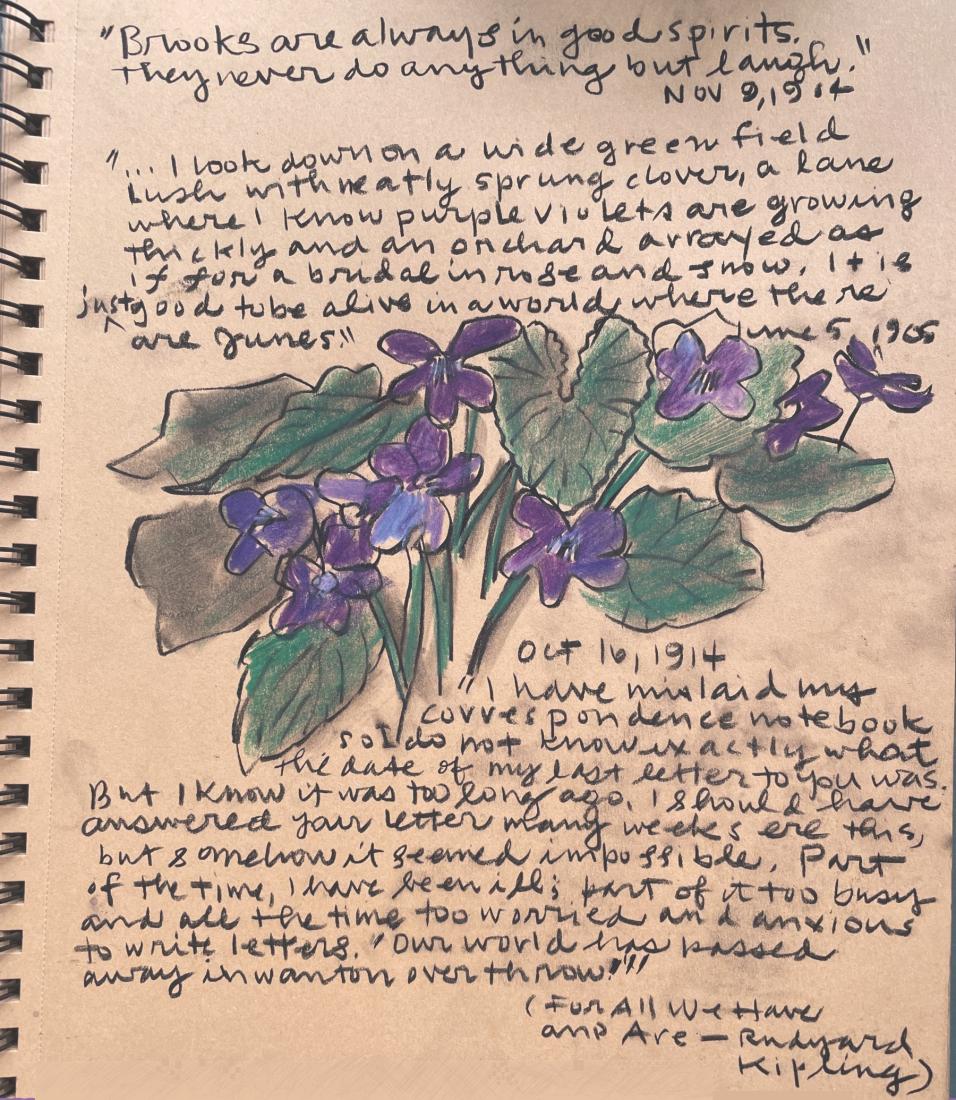 "Brooks are always in good spirits.
They never do anything but laugh."
NOV 9, 1914
"... I look down on a wide green field
lush with neatly sprung clover, a lane
where I know purple violets are growing
thickly and an orchard arrayed as
if for a bridal in rose and snow. It is
just good to be alive in a world where there
are Junes."
June 5, 1905
Oct 16, 1914
"I have mislaid my
correspondence notebook
so I do not know exactly what
the date of my last letter to you was.
But I know it was too long ago. I should have
answered your letter many weeks ere this,
but somehow it seemed impossible. Part
of the time, I have been ill; part of it too busy
and all the time too worried and anxious
to write letters. "Our world has passed
away in wanton overthrow!""
(For All We Have
and Are — Rudyard
Kipling)